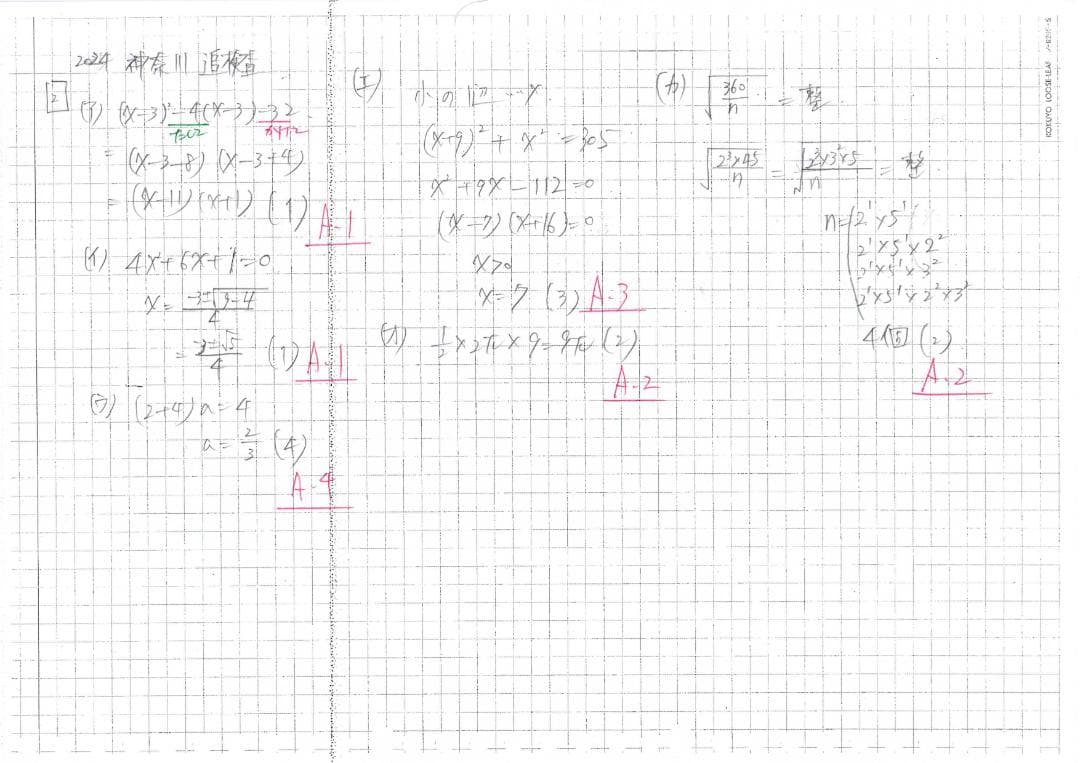 2024 神奈川 追検査
2
(ア) (x-3)²-4(x-3)-32
たして かけて
= (x-3-8)(x-3+4)
= (x-11)(x+1) (1)
A-1
(イ) 4x²+6x+1=0
x= -3±√9-4 / 4
= -3±√5 / 4 (1)
A-1
(ウ) (2+4)a=4
a= 2/3 (4)
A-4
(エ) 小の1辺…x
(x+9)²+x²=305
x²+9x-112=0
(x-7)(x+16)=0
x>0
x=7 (3) A-3
(オ) 1/2×2π×9=9π (2)
A-2
(カ) √360/n = 整
√2³×45/n = √2³×3²×5/n = 整
n= 2¹×5¹
2¹×5¹×2²
2¹×5¹×3²
2¹×5¹×2²×3²
4個 (2)
A-2
KOKUYO LOOSE-LEAF